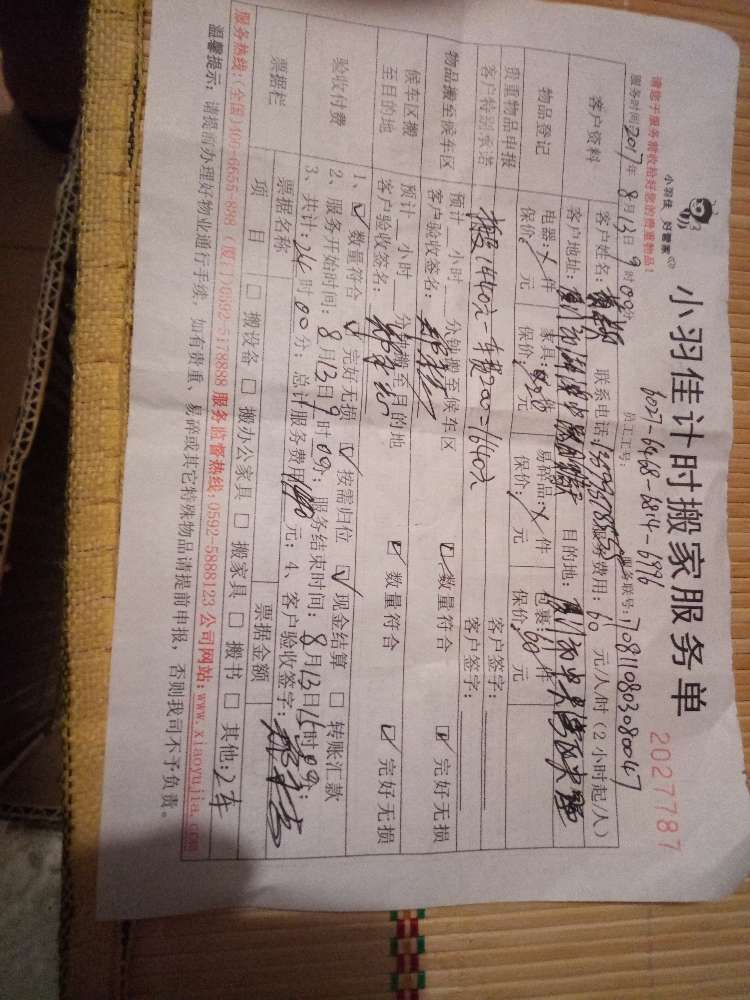 请您于服务前收拾好您的贵重物品！
小羽佳 好管家
小羽佳计时搬家服务单
2027787
服务时间2017年8月13日9时00分
员工工号：6027-6468-6814-6996
服务联号：170811080308004 7
客户资料
客户姓名： 联系电话： 服务费用：70元/人/时（2小时起/人）
客户地址： 目的地：
物品登记
电器：/件 家具： 件 易碎品：/件 包裹： 件
保价：/元 保价： 元 保价：/元 保价： 元
贵重物品申报
客户签字：
客户特别承诺
搬1440元-车费200=1640元
客户签字：
物品搬至候车区
预计 小时 分钟搬至候车区
☑数量符合 ☑完好无损
客户验收签名：
候车区搬至目的地
预计 小时 分钟搬至目的地
☑数量符合 ☑完好无损
客户验收签名：
验收付费
1、☑数量符合 ☑完好无损 ☑按需归位 ☑现金结算 □转账汇款
2、服务开始时间：8月13日9时00分；服务结束时间：8月13日15时00分；
3、共计：24时00分；总计服务费用 元；4、客户验收签字：
票据栏
票据名称 票据金额
项目 □搬设备 □搬办公家具 □搬家具 □搬书 □其他：2车
服务热线：（全国）400-6655-888 （厦门）0592-5178888 服务监督热线：0592-5888123 公司网站：www.xiaoyujia.com
温馨提示：请提前办理好物业通行手续，如有贵重、易碎或其它特殊物品请提前申报，否则我司不予负责。